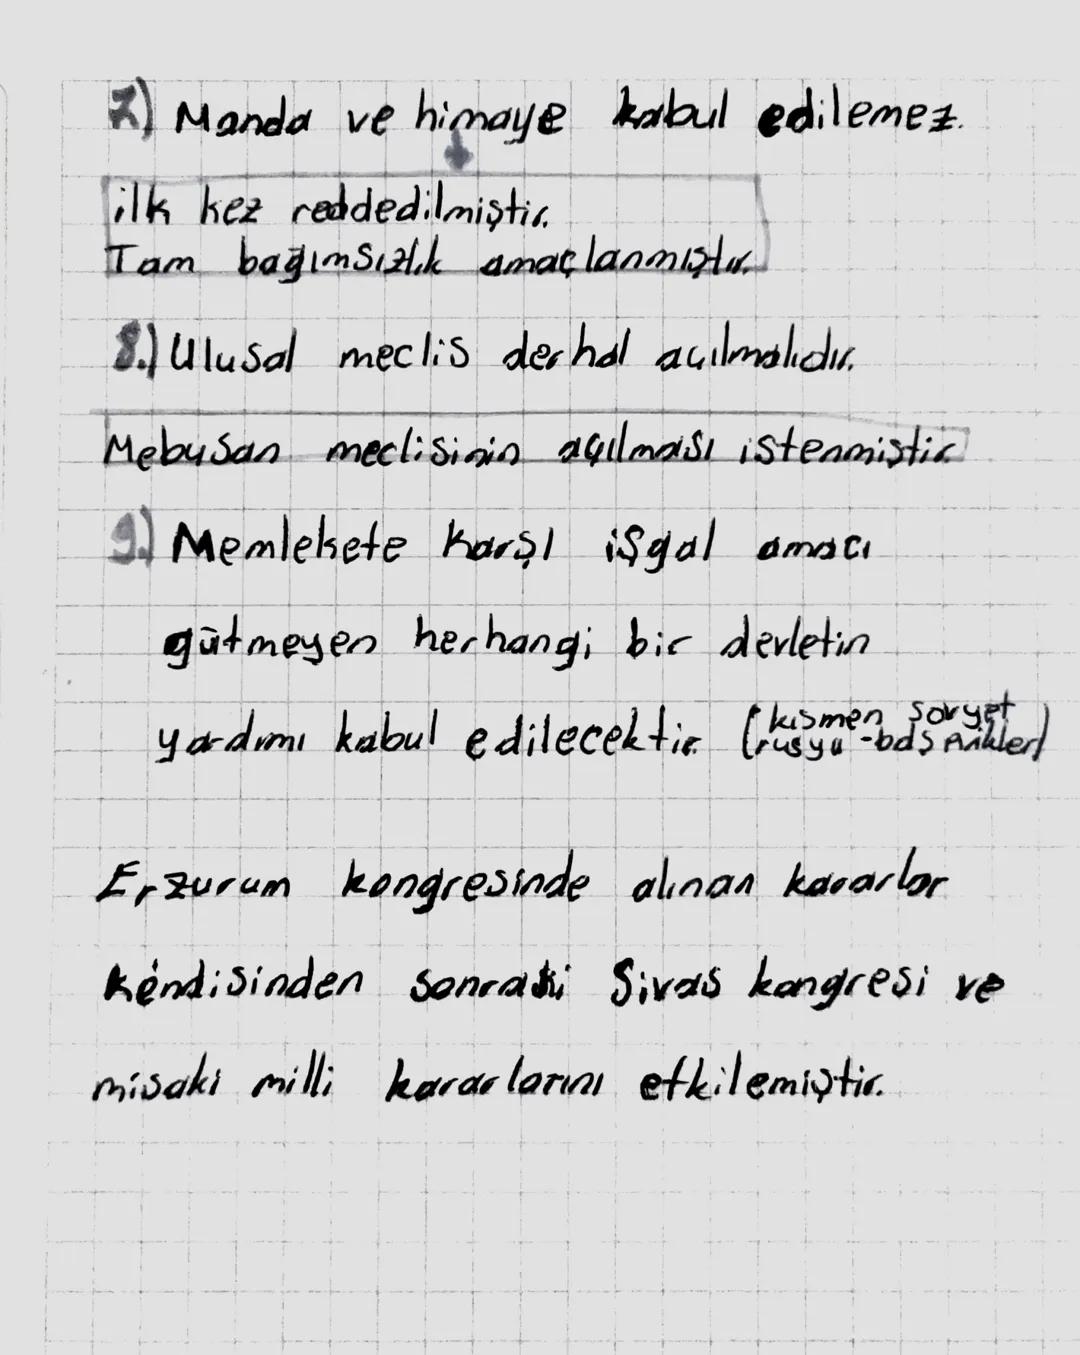 7.) Manda ve himaye kabul edilemez.
ilk kez reddedilmiştir.
Tam bağımsızlık amaçlanmıştır.
8.) Ulusal meclis derhal açılmalıdır.
Mebusan meclisinin açılması istenmiştir
9.) Memlekete karşı işgal amacı
gütmeyen herhangi bir devletin
yardımı kabul edilecektir. (kısmen sovyet
rusya -
Erzurum kongresinde alınan kararlar
kendisinden sonraki Sivas kongresi ve
misaki milli kararlarını etkilemiştir.